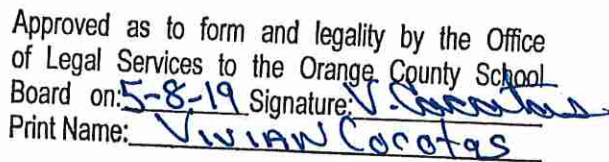 Approved as to form and legality by the Office
of Legal Services to the Orange County School
Board on: 5-8-19 Signature: V. Cocotas
Print Name: VIVIAN Cocotas